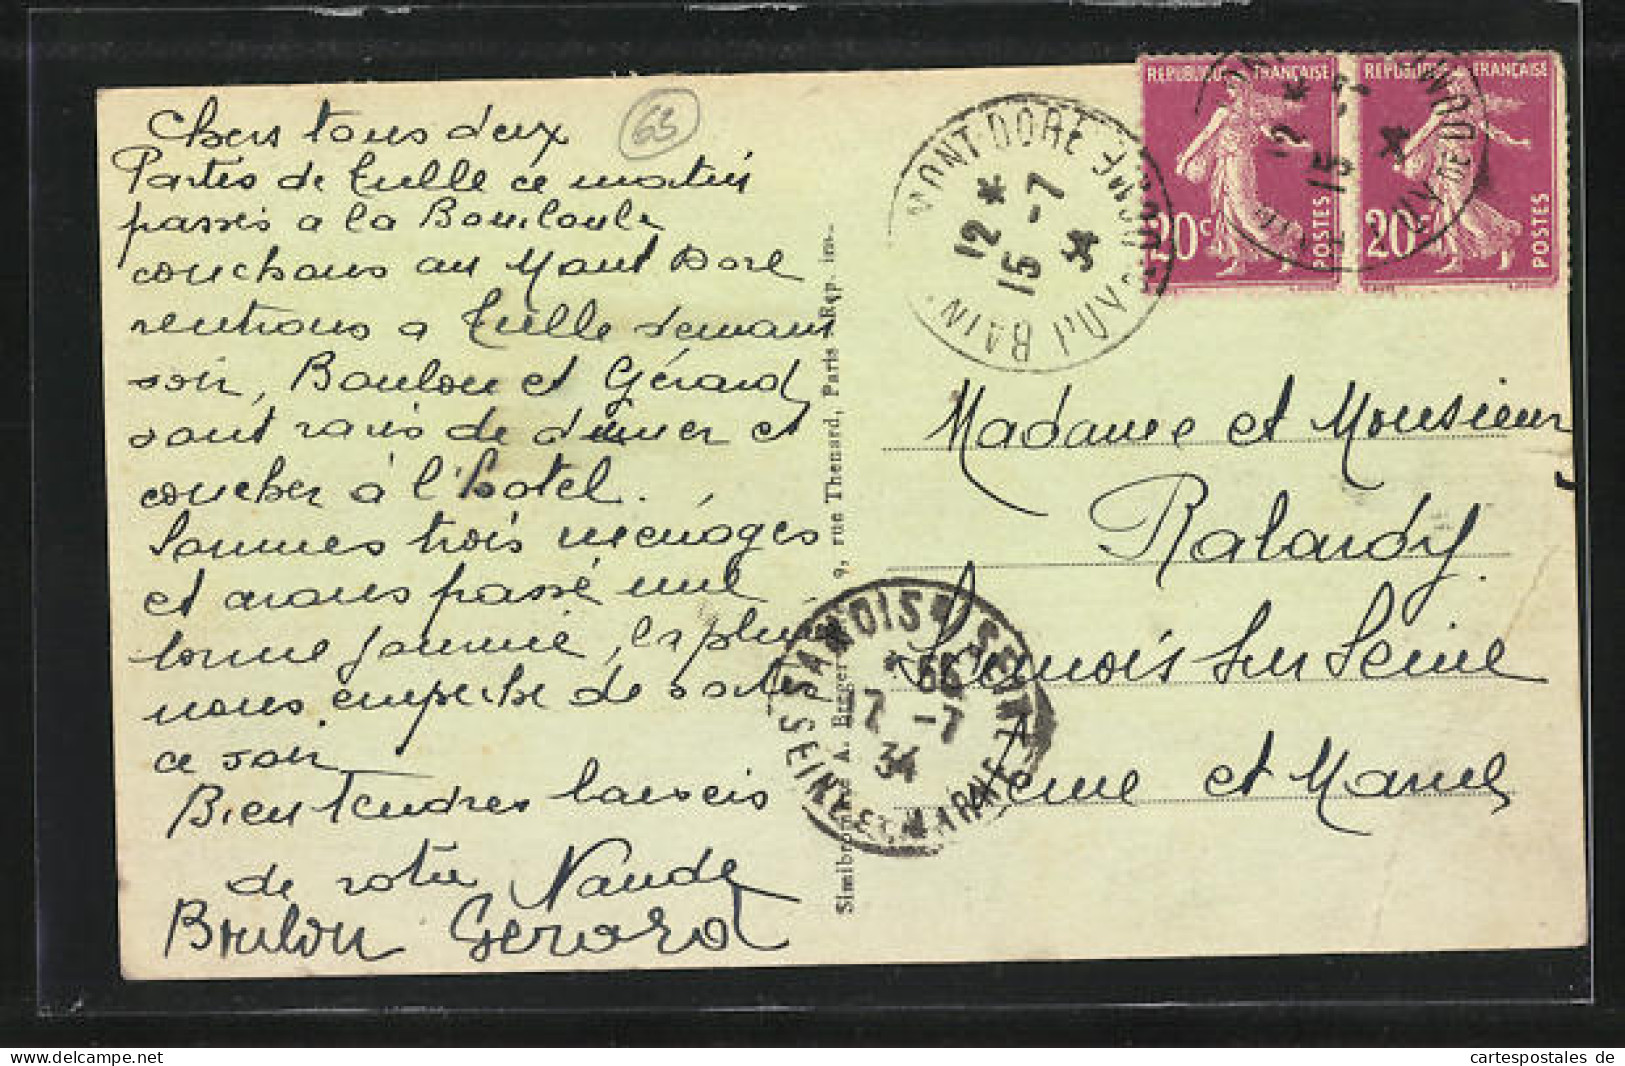 Chers tous deux
Partis de Tulle ce matin
passés a la Bourboule
couchons au Mont Dore
rentrons a Tulle demain
soir, Boulou et Gérard
sont ravis de dîner et
coucher à l'hotel.
Sommes trois ménages
et avons passé une
bonne journée, la pluie
nous empeche de sortir
ce soir
Bien tendres baisers
de votre Nande
Boulou Gérard
63
Simibromure A. Breger 9, rue Thenard, Paris - Rep. int.
MONT DORE PUY DE DOME
12 *
15 -7
34
GRAND BAIN
REPUBLIQUE FRANÇAISE
20c
POSTES
REPUBLIQUE FRANÇAISE
20c
POSTES
12 *
15 -7
34
PUY DE DOME
Madame et Monsieur
Ralardy
Samois sur Seine
Seine et Marne
SAMOIS S SEINE
17 -7
34
SEINE ET MARNE
cartespostales de